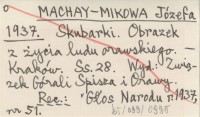 o
MACHAY-MIKOWA Józefa
1937. Skubarki. Obrazek
z życia ludu orawskiego. —
Kraków. Ss. 28. Wyd: Zwią-
zek Górali Spisza i Orawy.
Rec.: Głos Narodu r. 1937,
nr 51.